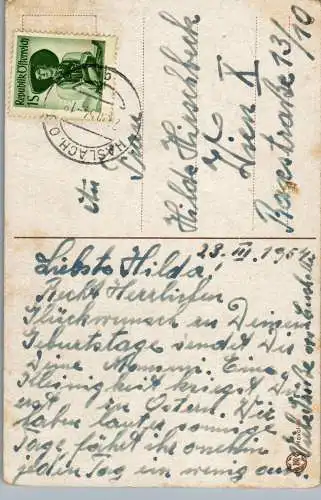 Republik Österreich
1S
HASLACH
An
Frau
Hilde Hirschbeck
Wien X
straße 13/10
23. III. 1954
Liebste Hilda!
Recht Herrlichen
Glückwunsch zu Deinem
Geburtstage sendet Dir
Deine Mommi. Eine
Kleinigkeit kriegst Du
erst zu Ostern. Wir
haben lauter sonnige
Tage, fährt ihr ohnehin
jeden Tag ein wenig aus.